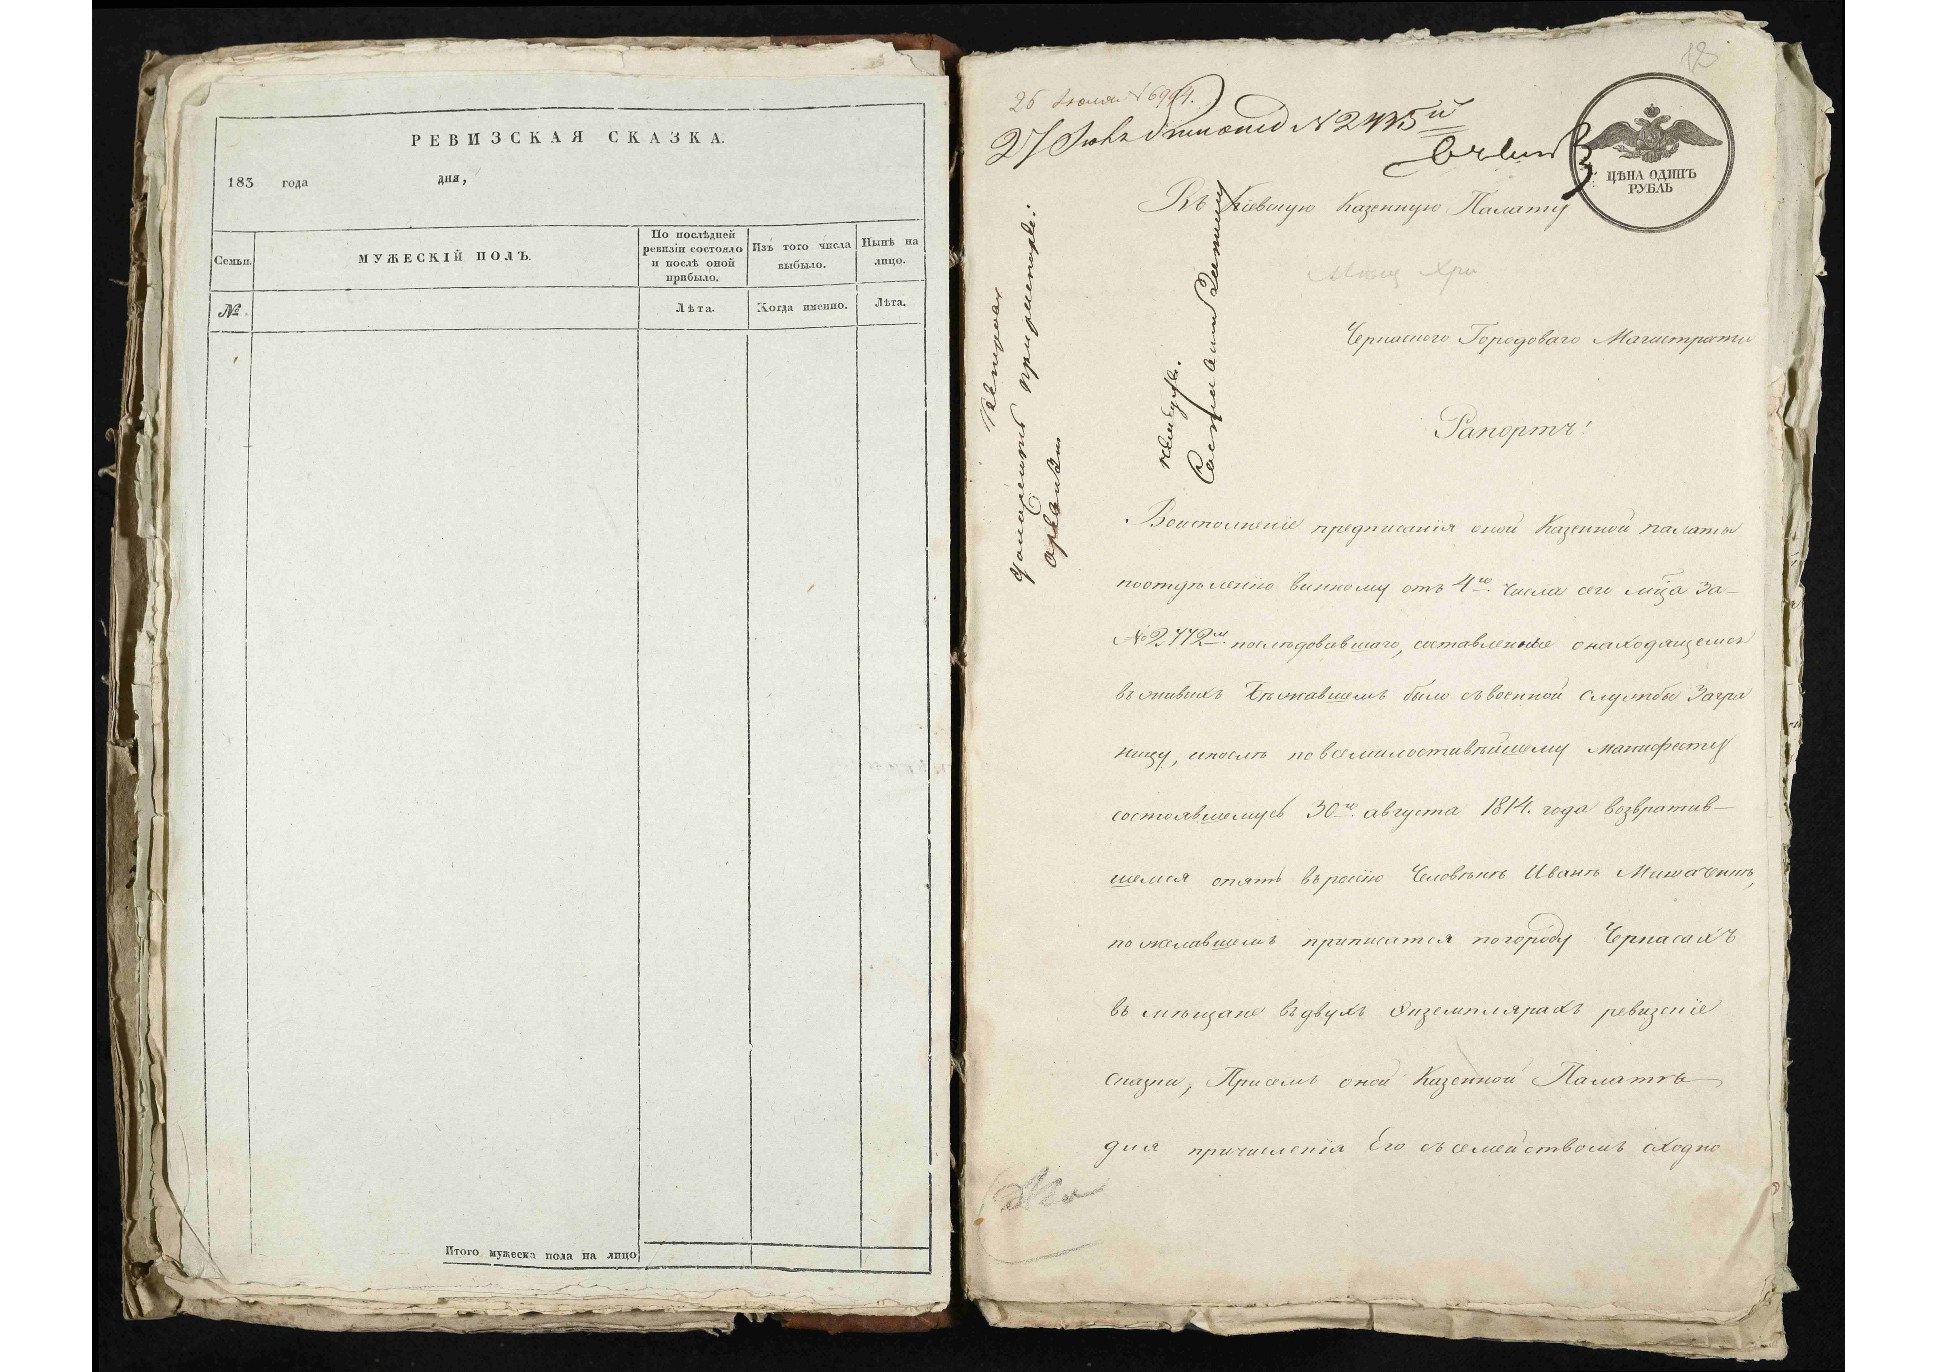 РЕВИЗСКАЯ СКАЗКА.
183 года дня,
Семьи.
МУЖЕСКІЙ ПОЛЪ.
По послѣдней
ревизіи состояло
и послѣ оной
прибыло.
Изъ того числа
выбыло.
Нынѣ на
лицо.
№.
Лѣта.
Когда именно.
Лѣта.
Итого мужеска пола на лицо
18
26 Іюля №6994.
27
ЦѢНА ОДИНЪ
РУБЛЬ
Въ Кіевскую Казенную Палату
Черкаского Городоваго Магистрата
Рапортъ!
Воисполненіе предписанія оной Казенной палаты
поотдѣленію винному отъ 4го. числа сего мца За-
№2772м. послѣдовавшаго, составленные онаходящемся
въживыхъ Бѣжавшемъ было съвоенной службы Загра
ницу, ипослѣ повсемилостивѣйшему манифесту
состоявшемусь 30го. августа 1814. года возвратив-
шемся опять въросію Человѣкѣ Иванѣ Мика
пожелавшемъ приписатся погороду Черкасахъ
въ мѣщане въдвухъ Экземплярахъ ревизскіе
сказки, При семъ оной Казенной Палатѣ
для причисленія Его съсемействомъ сходно